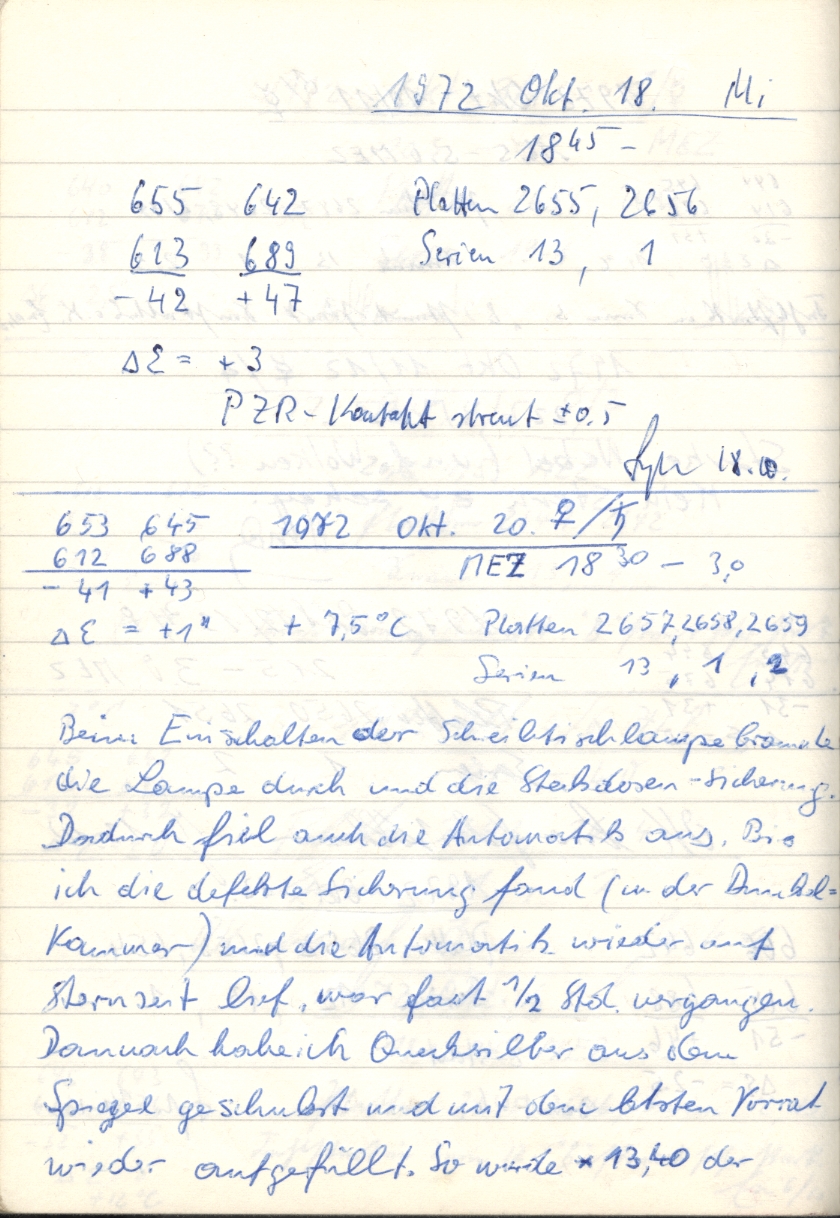 1972 Okt. 18. Mi
18 45 –
655 642 Platten 2655, 2656
613 689 Serien 13, 1
- 42 + 47
Δε = + 3
PZR-Kontakt streut ±0.5
18.10.
653 645 1972 Okt. 20. ♀/♄
612 688 MEZ 18 30 – 3,0
- 41 + 43
Δε = +1" + 7,5°C Platten 2657, 2658, 2659
Serien 13, 1, 2
Beim Einschalten der Schreibtischlampe brannte
die Lampe durch und die Steckdosen-Sicherung.
Dadurch fiel auch die Automatik aus. Bis
ich die defekte Sicherung fand (in der Dunkel=
kammer) und die Automatik wieder auf
Sternzeit lief, war fast 1/2 Std. vergangen.
Danach habe ich Quecksilber aus dem
Spiegel geschubst und mit dem letzten Vorrat
wieder aufgefüllt. So wurde * 13,40 der